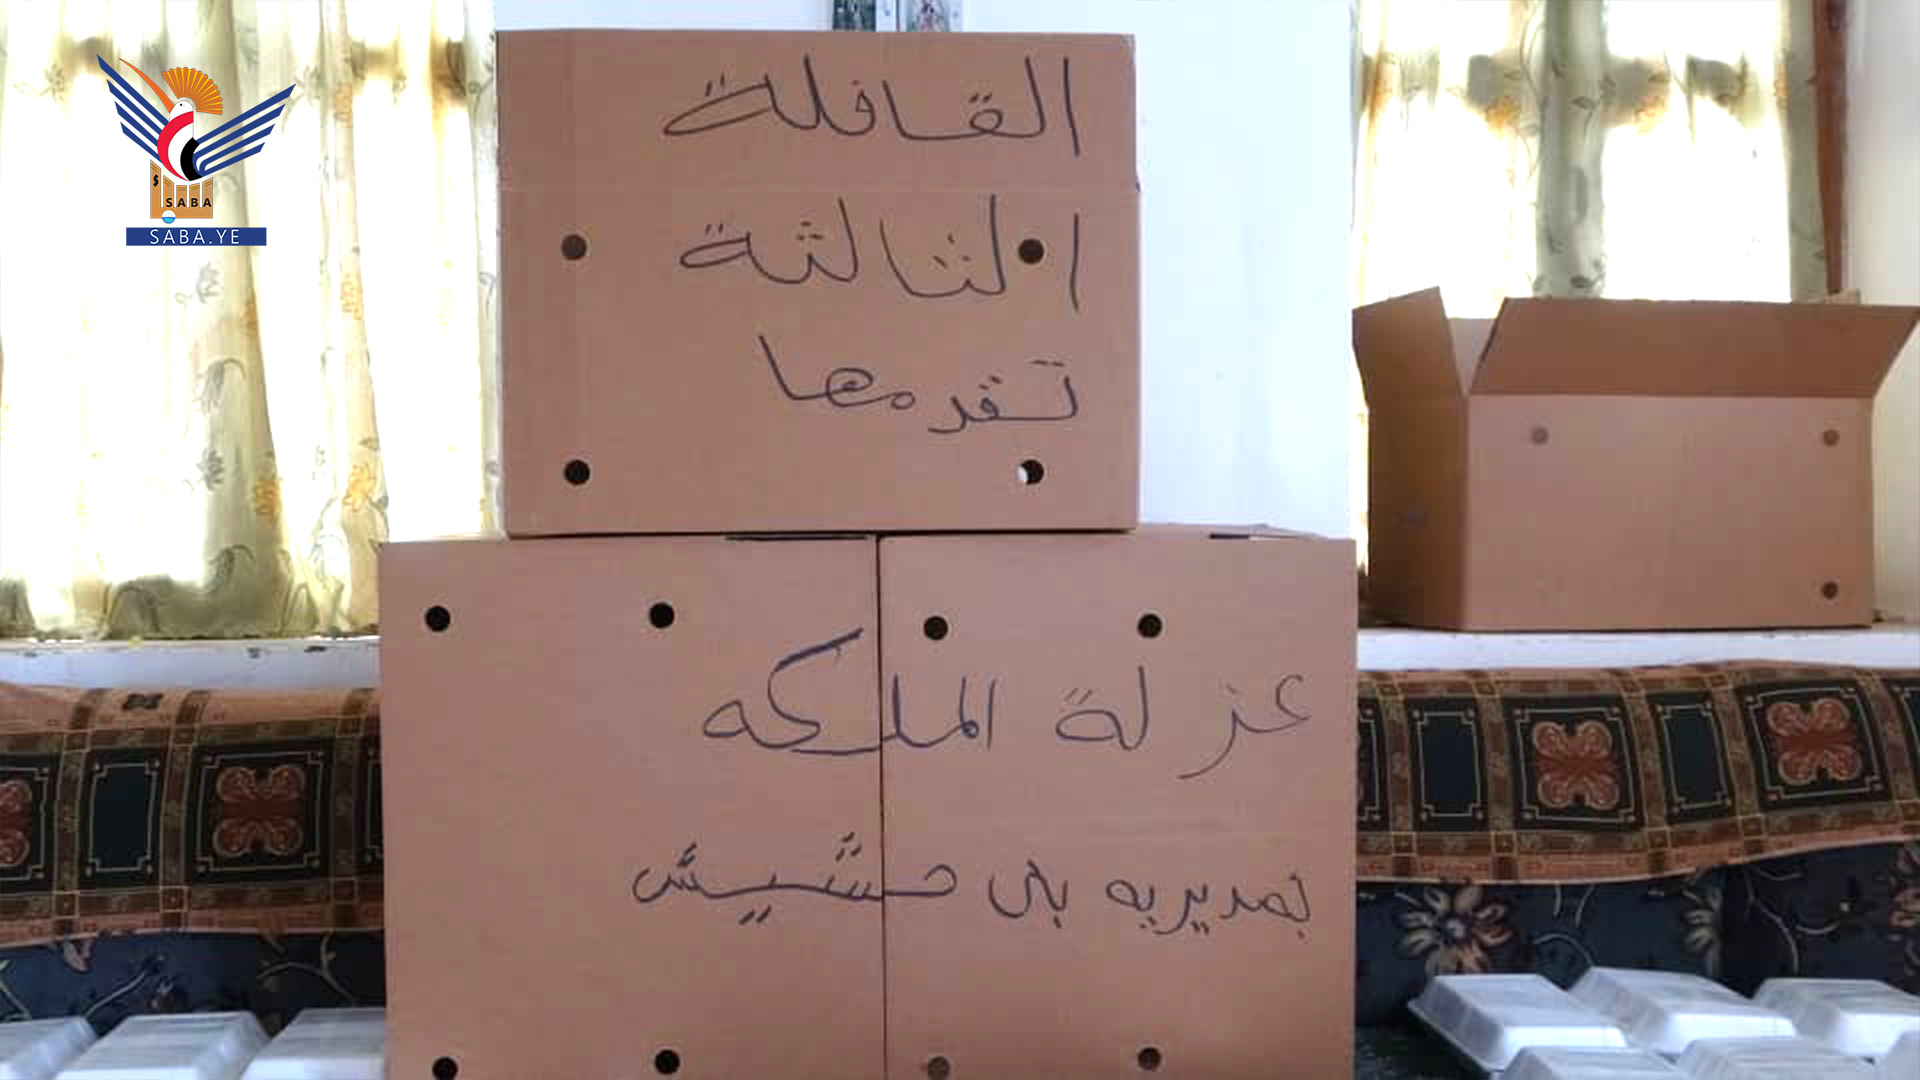 القافلة
الثالثة
تقدمها
عزلة الملكه
بمديريه بني حشيش
SABA
SABA.YE